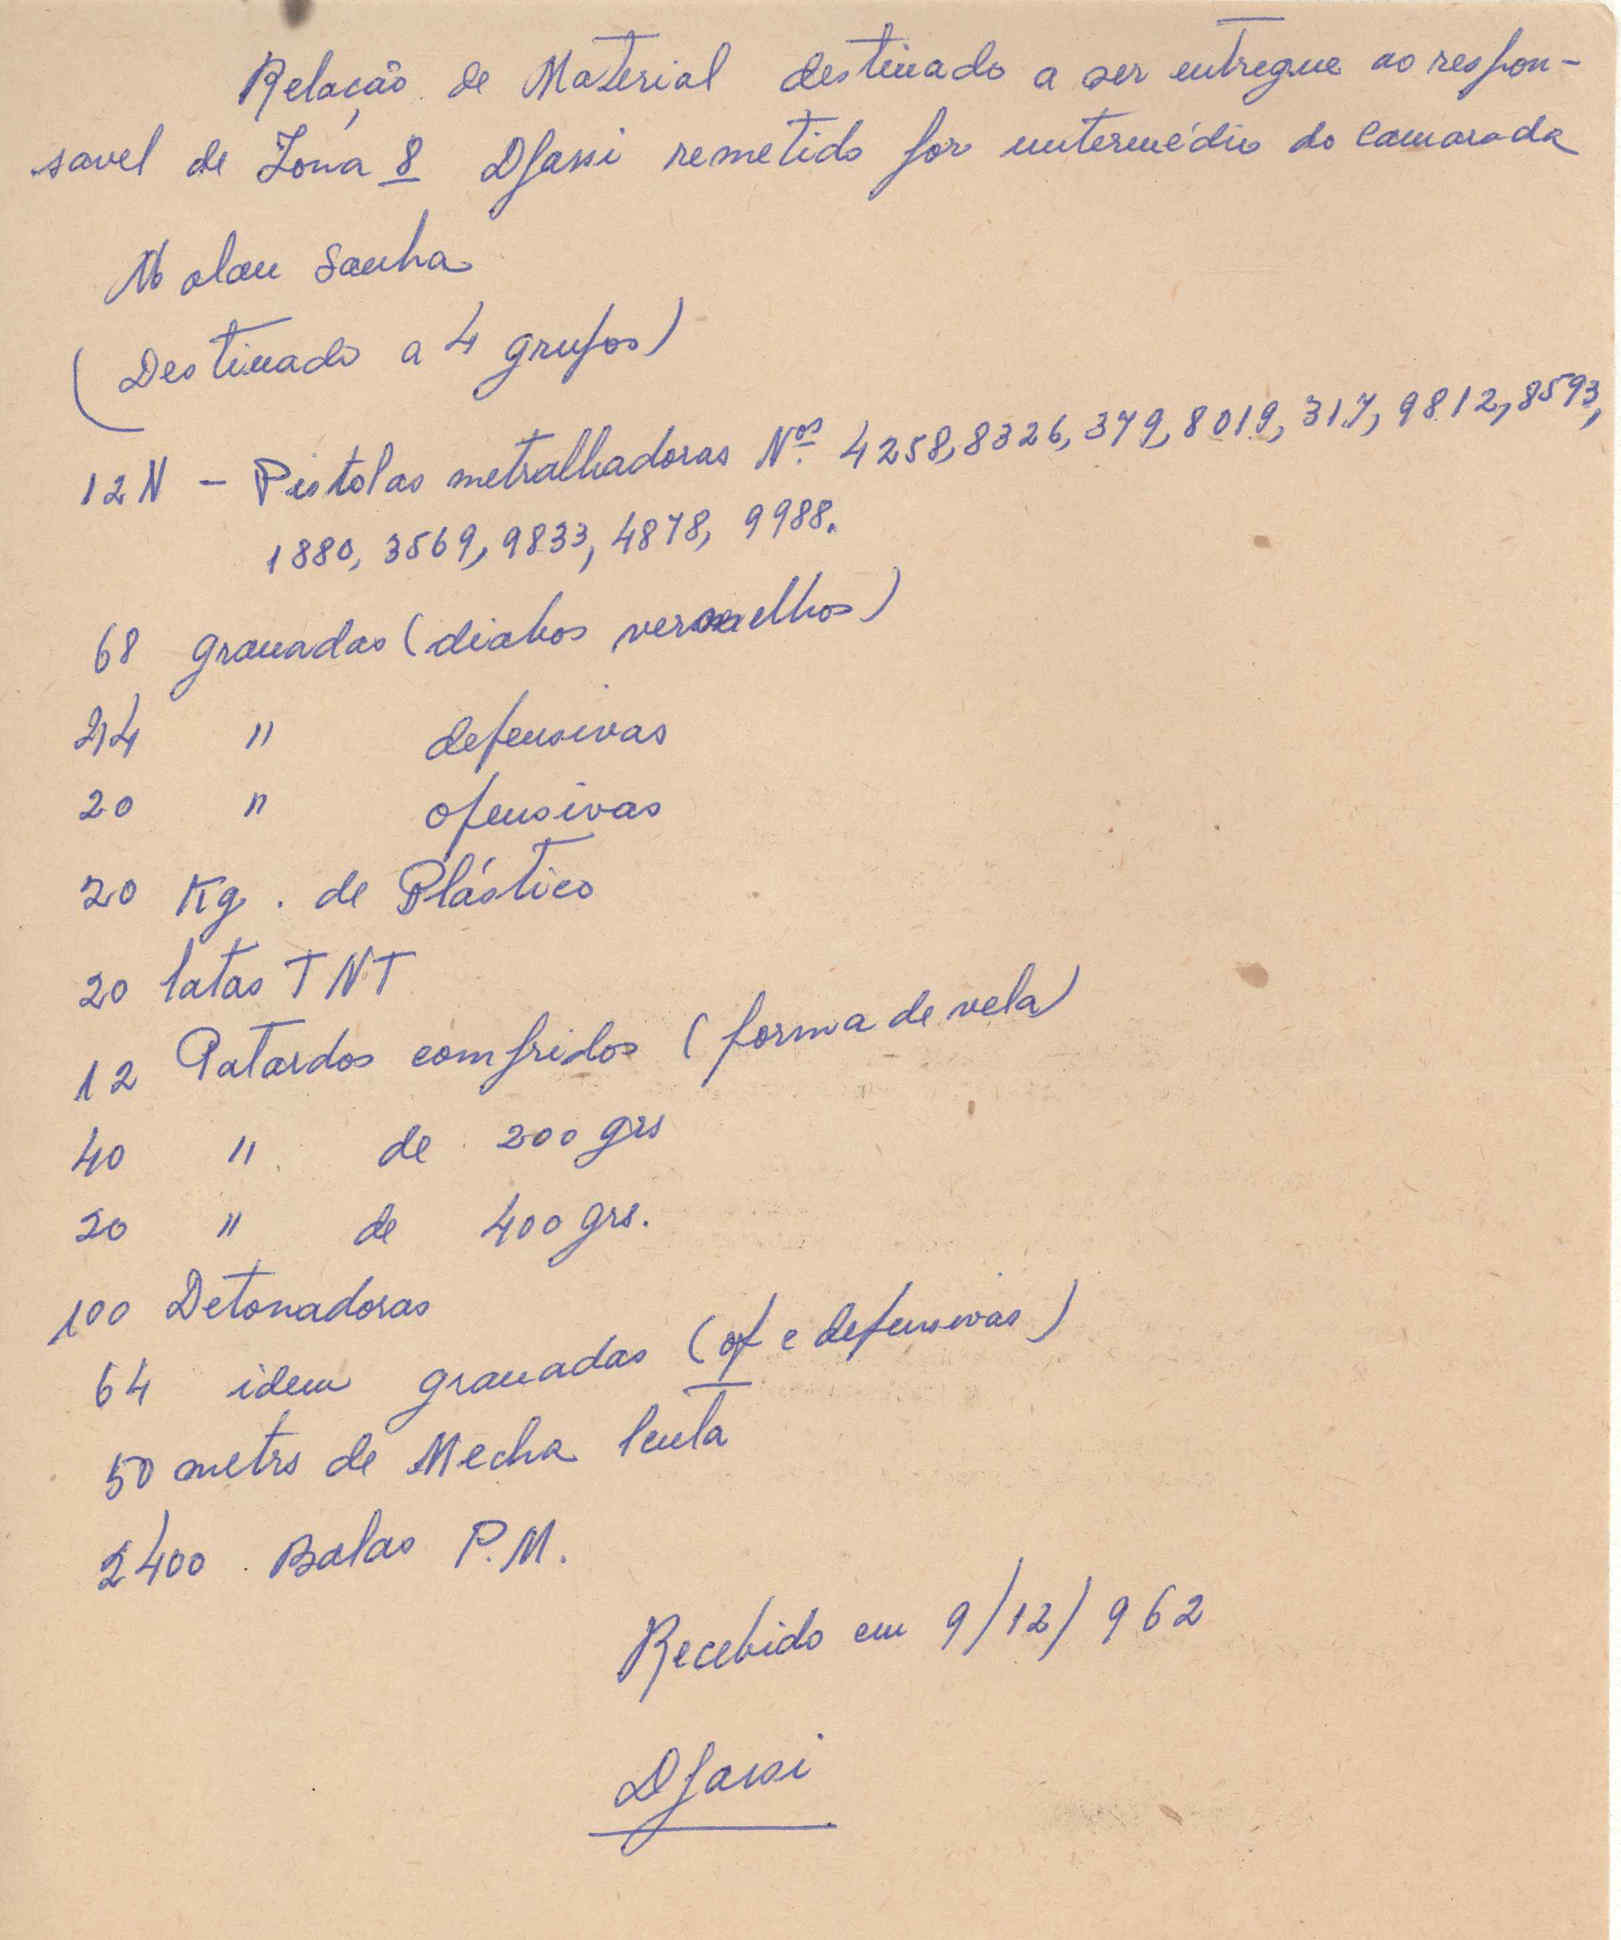 Relação de Material destinado a ser entregue ao respon-
savel de Zona 8 Djassi remetido por intermédio do Camarada
Malan Sanha
(Destinado a 4 grupos)
12 N - Pistolas metralhadoras Nos. 4258, 8326, 379, 8019, 317, 9812, 8593,
1880, 3569, 9833, 4878, 9988.
68 granadas (diabos vermelhos)
24 " defensivas
20 " ofensivas
20 Kg. de Plástico
20 latas TNT
12 Patardos compridos (forma de vela)
40 " de 200 grs
20 " de 400 grs.
100 Detonadoras
64 idem granadas (of e defensivas)
50 metrs de Mecha lenta
2400 Balas P.M.
Recebido em 9/12/962
Djassi